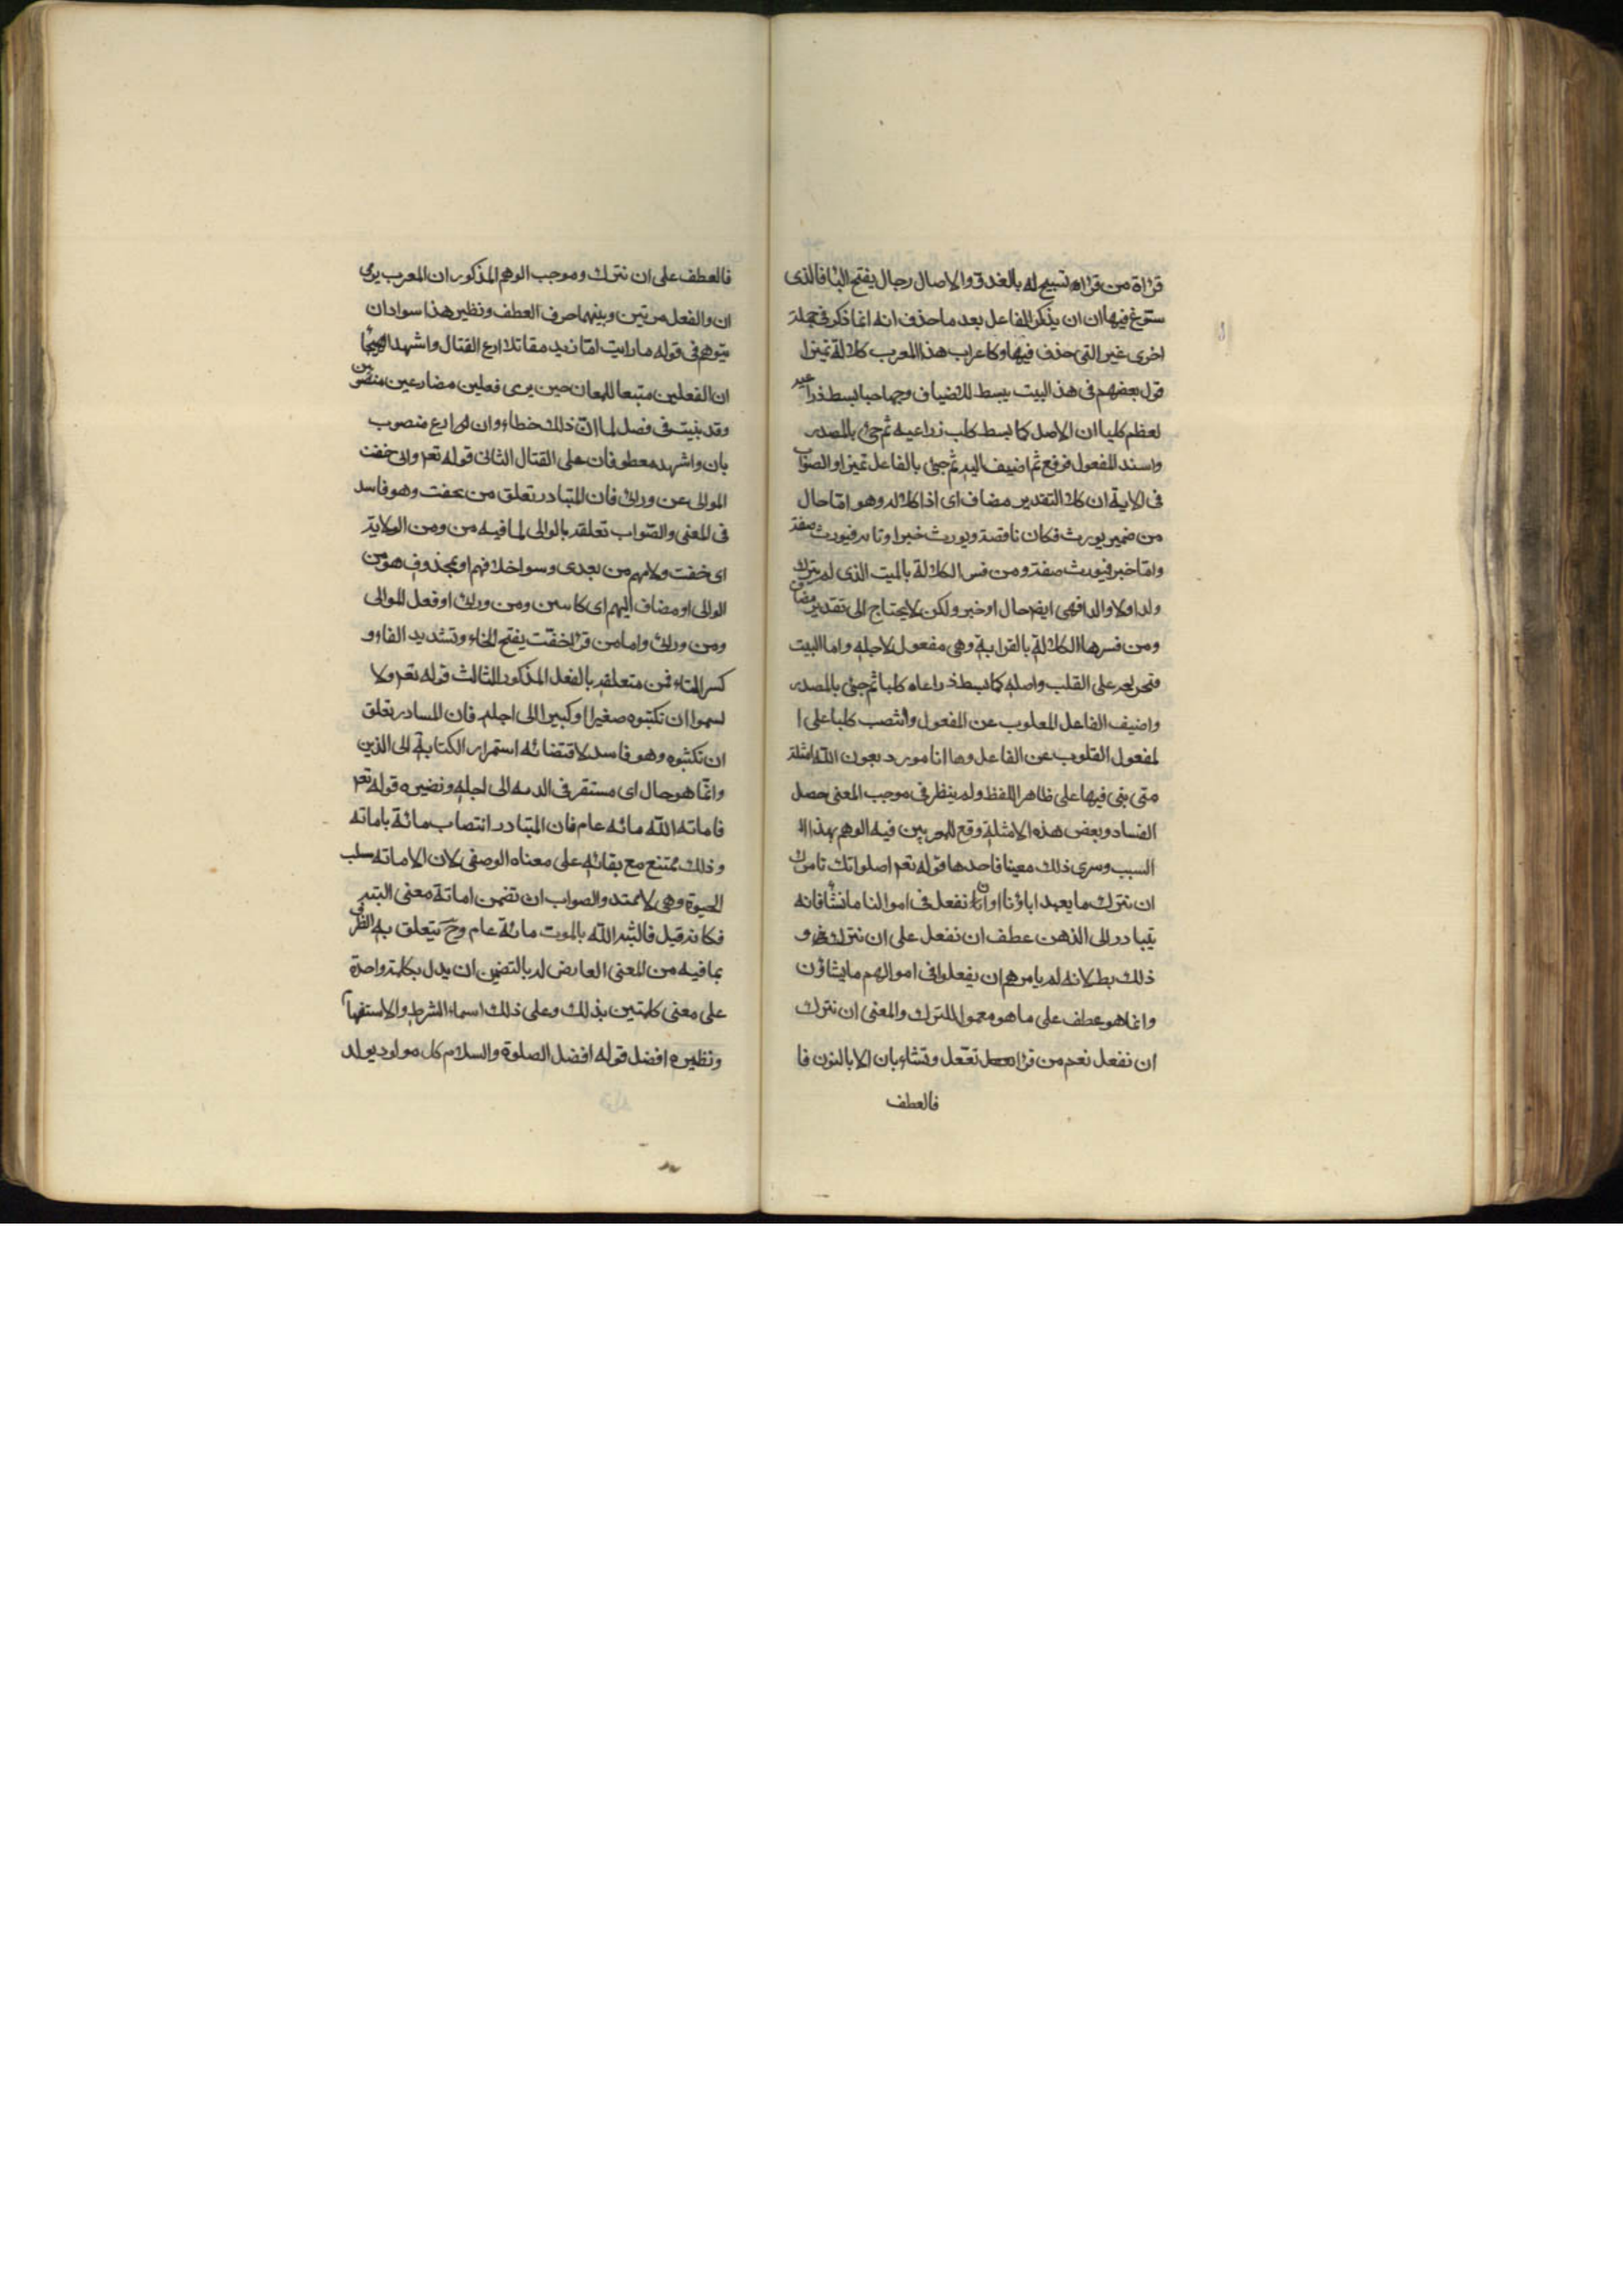 قراة من قراه تسبيح له بالغدو والاصال رجال يفتح البا فالذى
سوغ فيها ان ان يذكر الفاعل بعد ما حذف انه انما ذكر فى جملة
اخرى غير التى حذف فيها وكاعراب هذا المعرب كلالة تميزا
قول بعضهم فى هذا البيت يبسط للاضياف وجها رحبا بسط ذراعيه
لعظم كلبا ان الاصل كما بسط كلب ذراعيه ثم جئ بالمصدر
واسند للمفعول فرفع ثم اضيف اليه ثم جئ بالفاعل تميزا والصواب
فى الاية ان كان التقدير مضاف اى اذا كلاله وهو اما حال
من ضمير يورث فكان ناقصة ويورث خبر او تامه فيورث صفة
واما خبر فيورث صفة ومن فسر الكلالة بالميت الذى لم يترك
ولدا ولا والدا فهى ايضا حال او خبر ولكن لا يحتاج الى تقدير مضاف
ومن فسرها الكلالة بالقرابة وهى مفعول لاجله واما البيت
فتخريجه على القلب واصله كما بسط ذراعاه كلبا ثم جئ بالمصدر
واضيف الفاعل المعلوب عن المفعول وانتصب كلبا على ا
لمفعول القلوب عن الفاعل وها انا مورد بعون الله امثلة
متى بنى فيها على ظاهر اللفظ ولم ينظر فى موجب المعنى حصل
الفساد وبعض هذه الامثلة وقع للمعربين فيه الوهم بهذا ال
السبب وسرى ذلك معينا فاحدها قوله تعم اصلواتك تامرك
ان نترك ما يعبد اباؤنا او ان نفعل فى اموالنا ما نشا فانه
يتبادر الى الذهن عطف ان نفعل على ان نترك و
ذلك بط لانه لم يامرهم ان يفعلوا فى اموالهم ما يشاؤن
وانما هو عطف على ما هو معمول للترك والمعنى ان نترك
ان نفعل نعم من قرا تفعل وتشاء بان الا بالنون فا
فالعطف
فالعطف على ان نترك وموجب الوهم المذكور ان المعرب يرى
ان والفعل مرتين وبينهما حرف العطف ونظير هذا سوا دان
يتوهم فى قوله ما رايت ابا يزيد مقاتلا ادع القتال واشهد الهيجا
ان الفعلين متبعا للهعان حين يرى فعلين مضارعين منصوبين
وقد بنيت فى فصل لما ان ذلك خطاء وان ادع منصوب
بان واشهد معطوفان على القتال الثانى قوله تعم وانى خفت
الموالى عن ورائ فان المتبادر تعلق من بخفت وهو فاسد
فى المعنى والصواب تعلقه بالوالى لما فيه من ومن الولاية
اى خفت ولايهم من بعدى وسو اخلافهم او بمحذوف هو من
الوالى او مضاف اليهم اى كاسين ومن ورائ او فعل الموالى
ومن ورائ واما من قرا خفت يفتح الخاء وتشديد الفاء و
كسر التاء فمن متعلقه بالفعل المذكور الثالث قوله تعم ولا
لسموا ان تكتبوه صغيرا او كبيرا الى اجله فان المسادر تعلق
ان تكتبوه وهو فاسد لاقتضائه استمرار الكتابة الى الذين
وانما هو حال اى مستقر فى الدمه الى اجله ونضيره قوله تعم
فاماته الله مائه عام فان المتبادر انتصاب مائة باماته
وذلك ممتنع مع بقائه على معناه الوصفى لان الاماته سلب
الحيوة وهى لا تمتد والصواب ان تضمن اماتة معنى البثه
فكانه قيل فالبثه الله بالموت مائة عام وح يتعلق به الظرف
بما فيه من المعنى العارض له بالتضمن ان يدل بكلمة واحدة
على معنى كلمتين بذلك وعلى ذلك اسماء الشرط والاستفها
ونظيره افضل قوله افضل الصلوة والسلام كل مولود يولد